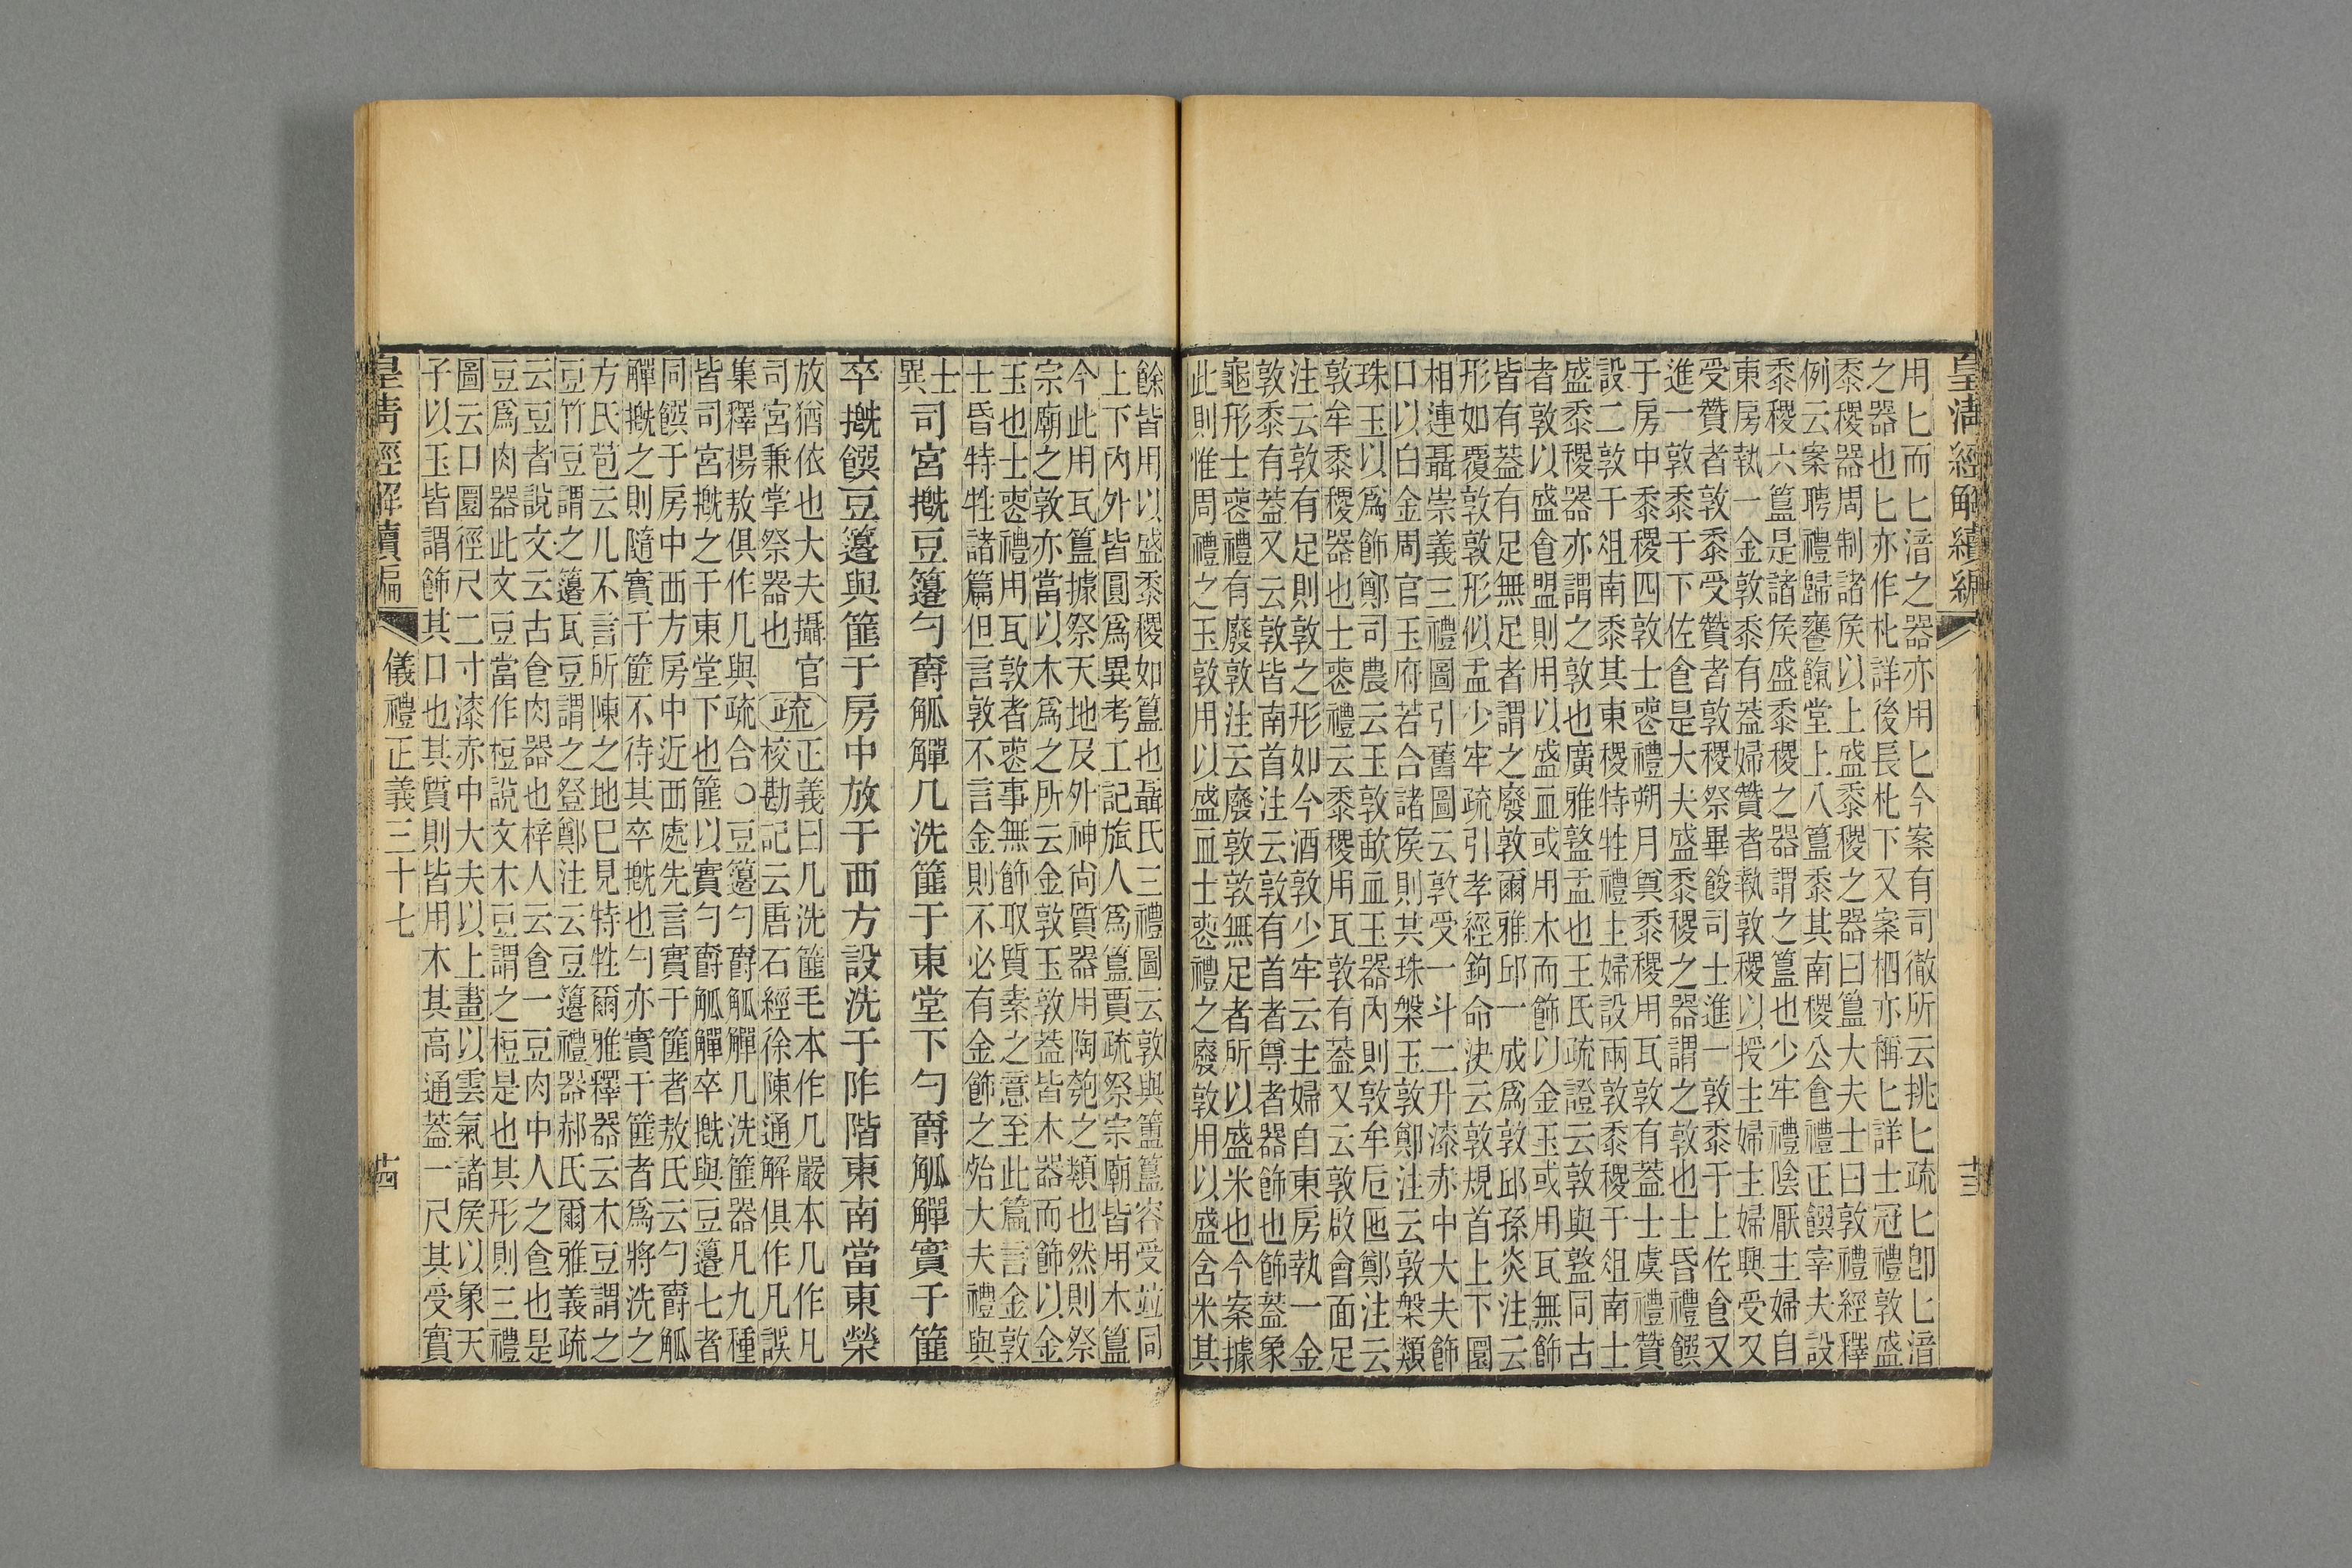 皇清經解續編
用匕而匕湇之器亦用匕今案有司徹所云挑匕疏匕卽匕湇
之器也匕亦作朼詳後長朼下又案柶亦稱匕詳士冠禮敦盛
黍稷器周制諸矦以上盛黍稷之器曰簋大夫士曰敦禮經釋
例云案聘禮歸饔餼堂上八簋黍其南稷公食禮正饌宰夫設
黍稷六簋是諸矦盛黍稷之器謂之簋也少牢禮陰厭主婦自
東房執一金敦黍有蓋婦贊者執敦稷以授主婦主婦興受又
受贊者敦黍受贊者敦稷祭畢餕司士進一敦黍于上佐食又
進一敦黍于下佐食是大夫盛黍稷之器謂之敦也士昏禮饌
于房中黍稷四敦士喪禮朔月奠黍稷用瓦敦有蓋士虞禮贊
設二敦于俎南黍其東稷特牲禮主婦設兩敦黍稷于俎南士
盛黍稷器亦謂之敦也廣雅䥢盂也王氏疏證云敦與䥢同古
者敦以盛食盟則用以盛血或用木而飾以金玉或用瓦無飾
皆有蓋有足無足者謂之廢敦爾雅邱一成爲敦邱孫炎注云
形如覆敦敦形似盂少牢疏引孝經鉤命決云敦規首上下圜
相連聶崇義三禮圖引舊圖云敦受一斗二升漆赤中大夫飾
口以白金周官玉府若合諸矦則共珠槃玉敦鄭注云敦槃類
珠玉以爲飾鄭司農云玉敦歃血玉器內則敦牟卮匜鄭注云
敦牟黍稷器也士喪禮云黍稷用瓦敦有蓋又云敦啟會面足
注云敦有足則敦之形如今酒敦少牢云主婦自東房執一金
敦黍有蓋又云敦皆南首注云敦有首者尊者器飾也飾蓋象
龜形士喪禮有廢敦注云廢敦敦無足者所以盛米也今案據
此則惟周禮之玉敦用以盛血士喪禮之廢敦用以盛含米其
餘皆用以盛黍稷如簋也聶氏三禮圖云敦與簠簋容受竝同
上下內外皆圓爲異考工記旊人爲簋賈疏祭宗廟皆用木簋
今此用瓦簋據祭天地及外神尚質器用陶匏之類也然則祭
宗廟之敦亦當以木爲之所云金敦玉敦蓋皆木器而飾以金
玉也士喪禮用瓦敦者喪事無飾取質素之意至此篇言金敦
士昏特牲諸篇但言敦不言金則不必有金飾之殆大夫禮與
士
異
司宮摡豆籩勺爵觚觶几洗篚于東堂下勺爵觚觶實于篚
卒摡饌豆籩與篚于房中放于西方設洗于阼階東南當東榮
放猶依也大夫攝官
司宮兼掌祭器也
疏
正義曰几洗篚毛本作几嚴本几作凡
校勘記云唐石經徐陳通解俱作凡誤
集釋楊敖俱作几與疏合○豆籩勺爵觚觶几洗篚器凡九種
皆司宮摡之于東堂下也篚以實勺爵觚觶卒摡與豆籩七者
同饌于房中西方房中近西處先言實于篚者敖氏云勺爵觚
觶摡之則隨實于篚不待其卒摡也勺亦實于篚者爲將洗之
方氏苞云几不言所陳之地已見特牲爾雅釋器云木豆謂之
豆竹豆謂之籩瓦豆謂之登鄭注云豆籩禮器郝氏爾雅義疏
云豆者說文云古食肉器也梓人云食一豆肉中人之食也是
豆爲肉器此文豆當作梪說文木豆謂之梪是也其形則三禮
圖云口圜徑尺二寸漆赤中大夫以上畫以雲氣諸矦以象天
子以玉皆謂飾其口也其質則皆用木其高通蓋一尺其受實
皇清經解續編
儀禮正義三十七